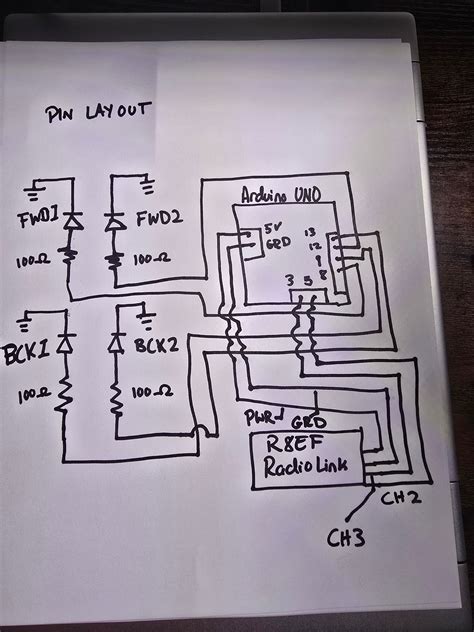 PIN LAYOUT
Arduino UNO
FWD1
FWD2
5V
GRD
13
12
9
8
100Ω
100Ω
3 5
BCK1
BCK2
100Ω
100Ω
PWR
GRD
R8EF
RadioLink
CH2
CH3